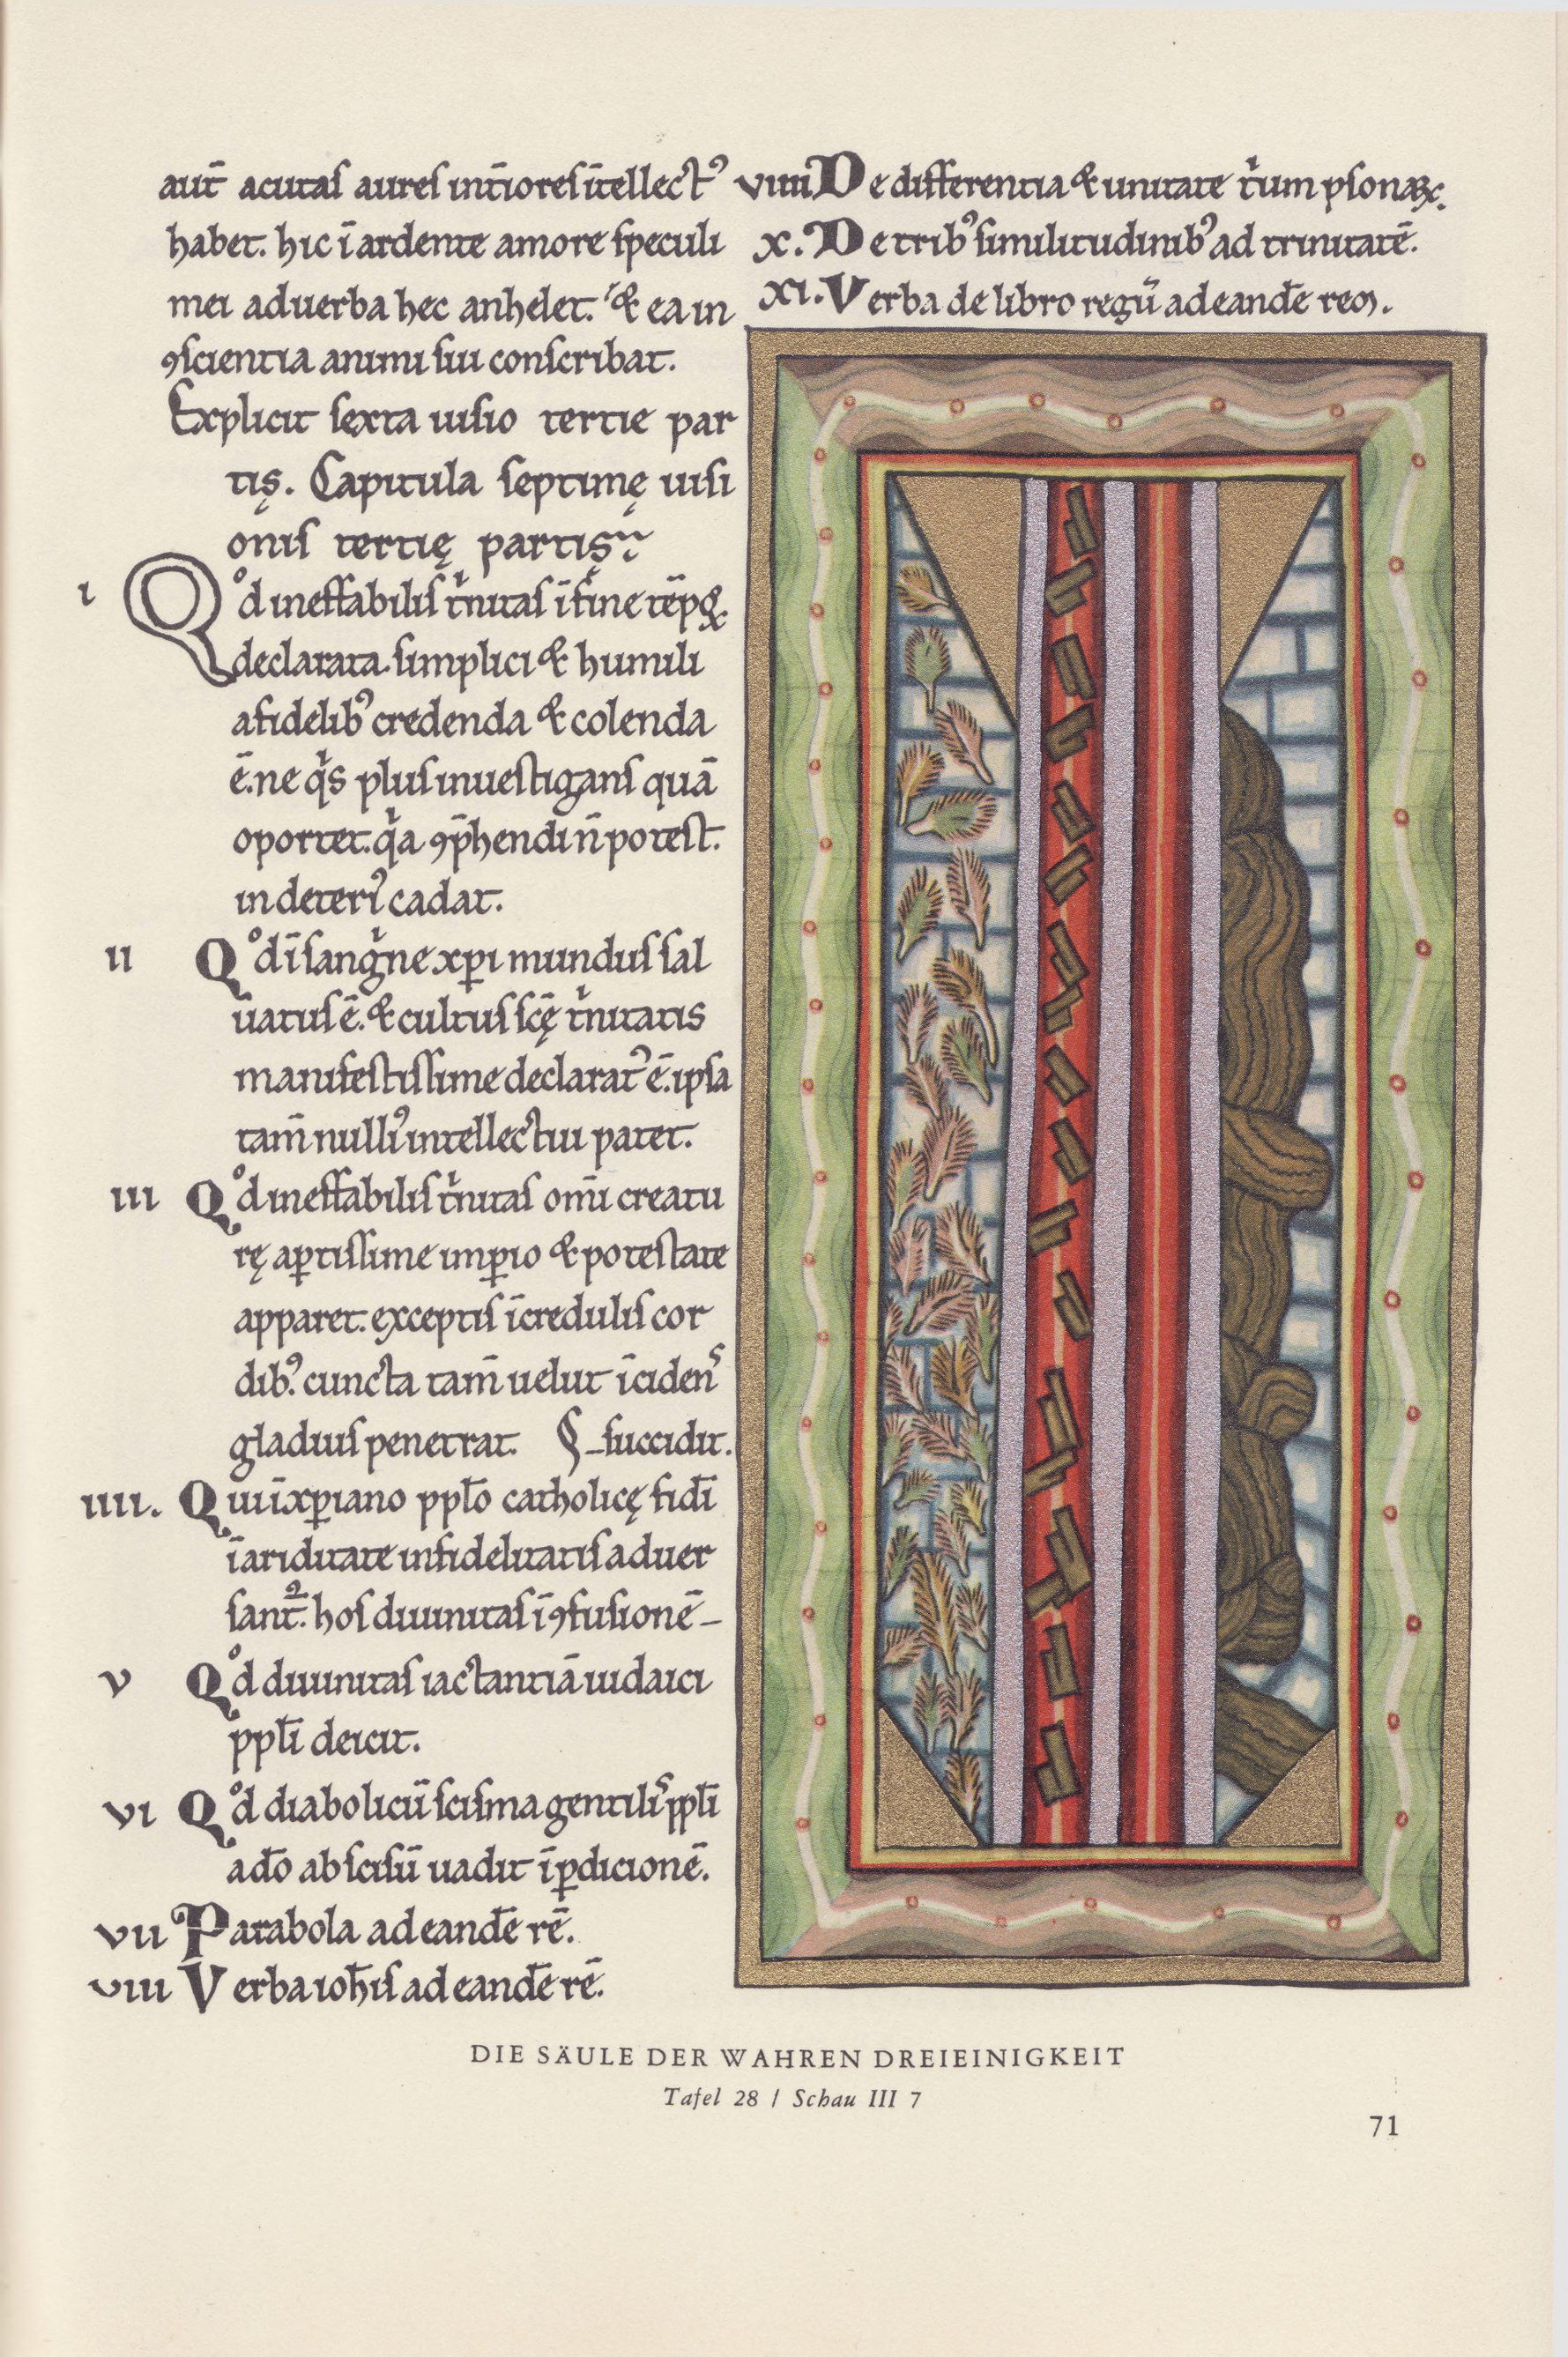 aut̄ acutas aures int̄iores ītellectꝰ
habet. hic ī ardente amore speculi
mei ad uerba hec anhelet. & ea in
ꝯscientia animi sui conscribat.
Explicit sexta uisio tertie par
tis̨. Capitula septimę uisi
onis tertię partis̨
i Qͦd ineffabilis tͥnitas ī fine tēpoꝝ
declarata. simplici & humili
a fidelibꝰ credenda & colenda
ē. ne qͥs plus inuestigans quā
oportet. qͥa ꝯp̄hendi n̄ potest.
in deteriꝰ cadat.
ii Qͦd ī sangͥne xp̱i mundus sal
uatus ē. & cultus scę̄ tͥnitatis
manifestissime declaratꝰ ē. ipsa
tam̄ nulliꝰ intellectui patet.
iii Qͦd ineffabilis tͥnitas om̄i creatu
rę aꝑtissime imꝑio & potestate
apparet. exceptis īcredulis cor
dibꝰ. cuncta tam̄ uelut īcidens
gladius penetrat. succidit.
iiii. Qui ī xp̱iano ppl̄o catholicę fidī
ī ariditate infidelitatis aduer
sant᷑. hos diuinitas ī ꝯfusionē
v Qͦd diuinitas iactantiā iudaici
ppl̄i deicit.
vi Qͦd diabolicū scisma gentilis ppl̄i
a dō abscisū uadit ī ꝑdicionē.
vii Parabola ad eandē rē.
viii Verba ioh̄is ad eandē rē.
viiii De differentia & unitate tͥum ꝑsonaꝝ.
x. De tribꝰ similitudinibꝰ ad trinitatē.
xi. Verba de libro regū ad eandē rem.
DIE SÄULE DER WAHREN DREIEINIGKEIT
Tafel 28 / Schau III 7
71